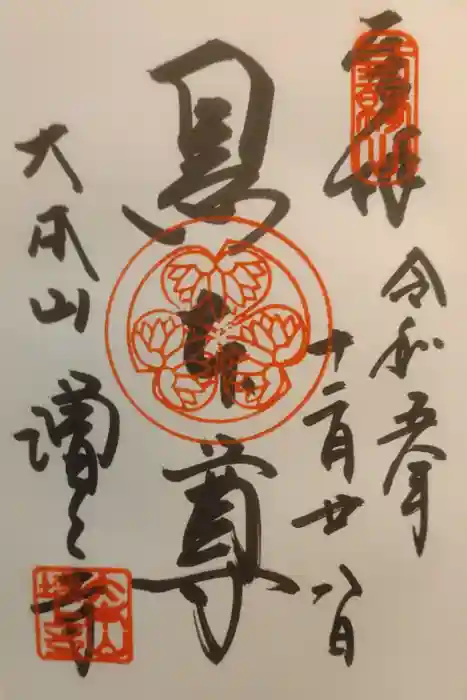 奉拝
三縁山
令和五年
十二月廿八日
黒本尊
大本山
増上寺